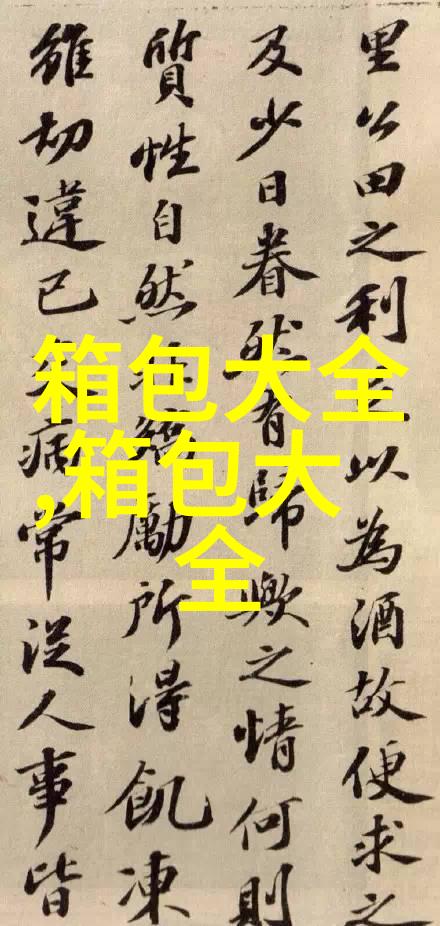 里公田之利以為酒故便求之
及少日眷然有歸歟之情何則
質性自然矯勵所得飢凍
雖切違己病常從人事皆
箱包大全
,箱包大
全